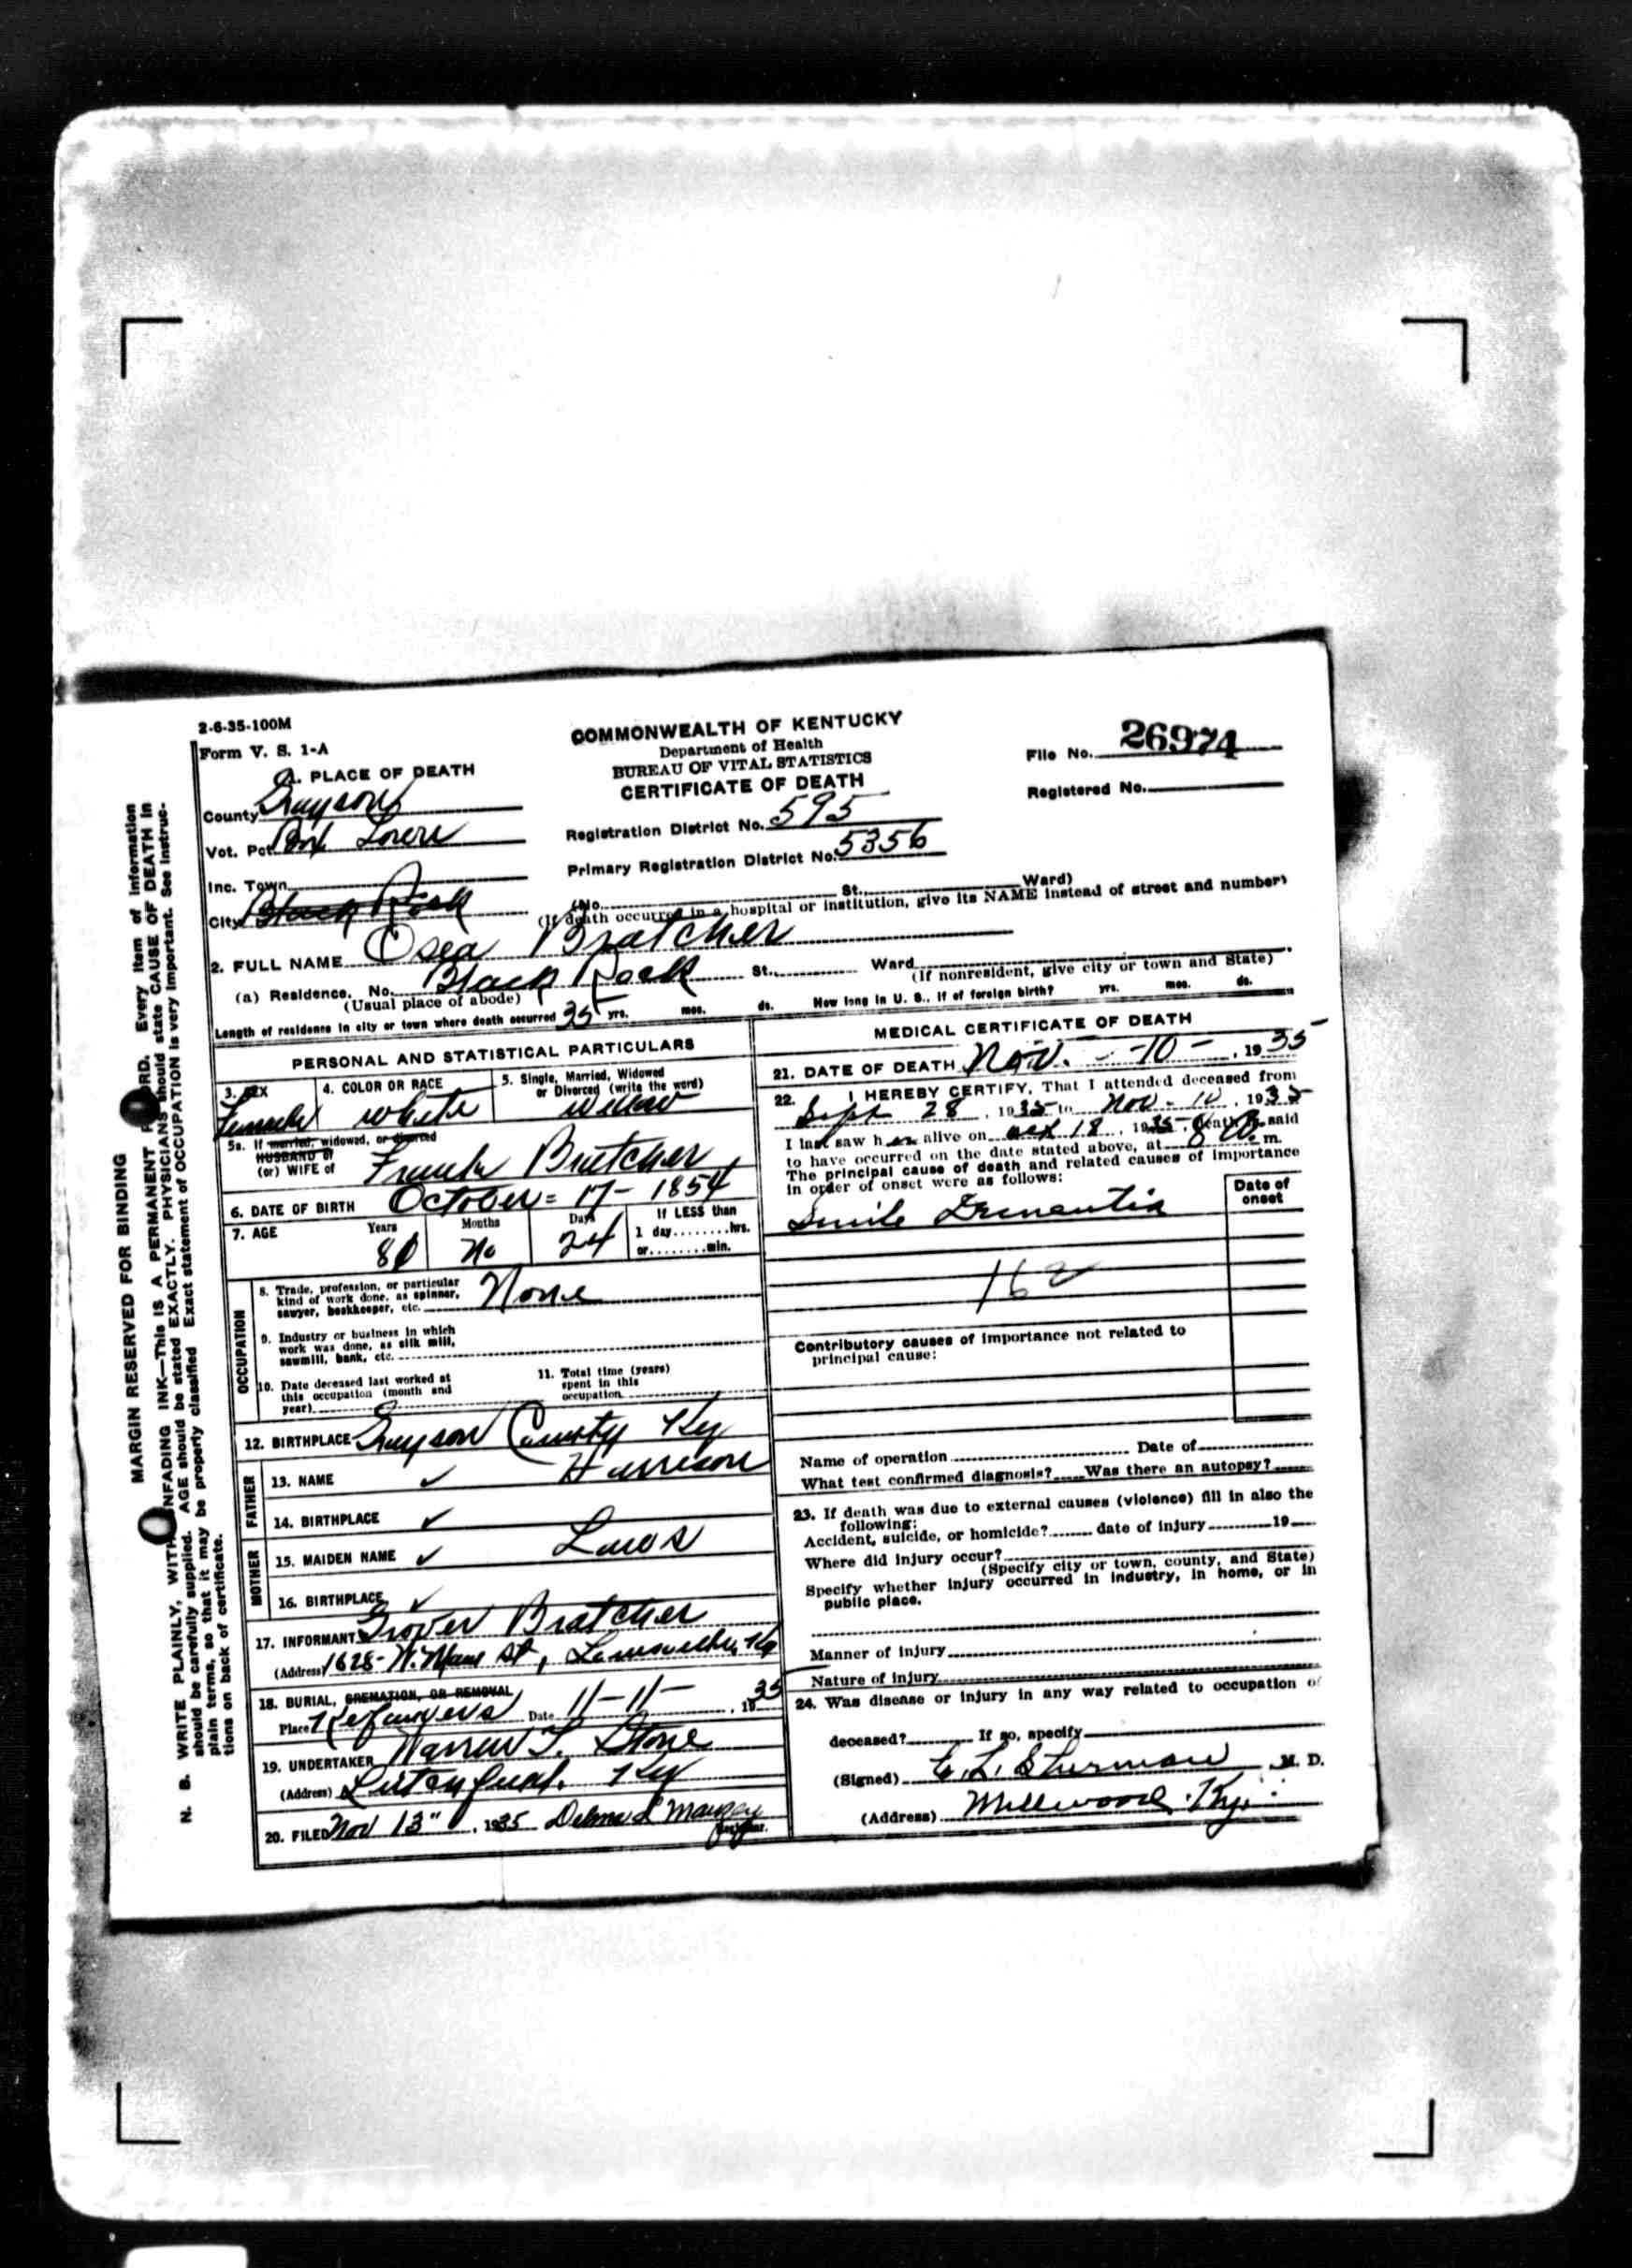 2-6-35-100M
Form V. S. 1-A
COMMONWEALTH OF KENTUCKY
Department of Health
BUREAU OF VITAL STATISTICS
CERTIFICATE OF DEATH
File No. 26974
Registered No.
1. PLACE OF DEATH
County Grayson
Vot. Pct.
Inc. Town
City Black Rock
Registration District No. 595
Primary Registration District No. 5356
(No. St., Ward)
(If death occurred in a hospital or institution, give its NAME instead of street and number)
2. FULL NAME Osea Bratcher
(a) Residence. No. Black Rock St., Ward
(Usual place of abode) (If nonresident, give city or town and State)
Length of residence in city or town where death occurred 35 yrs. mos. ds. How long in U. S., if of foreign birth? yrs. mos. ds.
PERSONAL AND STATISTICAL PARTICULARS
3. SEX
Female
4. COLOR OR RACE
white
5. Single, Married, Widowed
or Divorced (write the word)
Widow
5a. If married, widowed, or divorced
HUSBAND of
(or) WIFE of Frank Bratcher
6. DATE OF BIRTH October = 17 - 1854
7. AGE Years Months Days If LESS than
1 day ........ hrs.
or ........ min.
No 24
OCCUPATION
8. Trade, profession, or particular
kind of work done, as spinner,
sawyer, bookkeeper, etc. None
9. Industry or business in which
work was done, as silk mill,
sawmill, bank, etc.
10. Date deceased last worked at
this occupation (month and
year)
11. Total time (years)
spent in this
occupation
12. BIRTHPLACE Grayson County Ky
FATHER
13. NAME ✓ Harrison
14. BIRTHPLACE ✓
MOTHER
15. MAIDEN NAME ✓
16. BIRTHPLACE ✓
17. INFORMANT Grover Bratcher
(Address) 1628 - W. Main St, Louisville, Ky
18. BURIAL, CREMATION, OR REMOVAL
Place Date 11-11- , 1935
19. UNDERTAKER Warren T. Stone
(Address) Ky
20. FILED Nov 13" , 1935 Delma L
Registrar.
MEDICAL CERTIFICATE OF DEATH
21. DATE OF DEATH Nov. - 10 - , 1935
22. I HEREBY CERTIFY, That I attended deceased from
Sept 28 , 1935 to Nov - 10 , 1935
I last saw her alive on Oct 18 , 1935, death is said
to have occurred on the date stated above, at 8 m.
The principal cause of death and related causes of importance
in order of onset were as follows:
Date of
onset
Senile Dementia
162
Contributory causes of importance not related to
principal cause:
Name of operation Date of
What test confirmed diagnosis? Was there an autopsy?
23. If death was due to external causes (violence) fill in also the
following:
Accident, suicide, or homicide? date of injury 19
Where did injury occur?
(Specify city or town, county, and State)
Specify whether injury occurred in industry, in home, or in
public place.
Manner of injury
Nature of injury
24. Was disease or injury in any way related to occupation of
deceased? If so, specify
(Signed) C. L. Sherman M. D.
(Address) Millwood Ky.
MARGIN RESERVED FOR BINDING
N. B. WRITE PLAINLY, WITH UNFADING INK—This IS A PERMANENT RECORD. Every item of information
should be carefully supplied. AGE should be stated EXACTLY. PHYSICIANS should state CAUSE OF DEATH in
plain terms, so that it may be properly classified Exact statement of OCCUPATION is very important. See instruc-
tions on back of certificate.